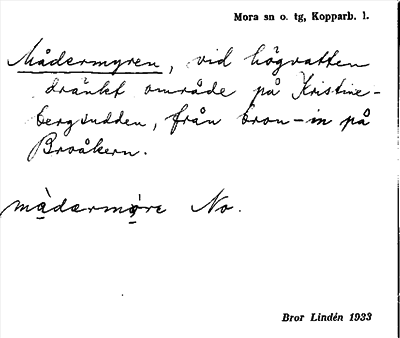 Mora sn o. tg, Kopparb. l.
Mådermyren, vid högvatten
dränkt område på Kristine-
bergsudden, från bron – in på
Broåkern.
No.
Bror Lindén 1933